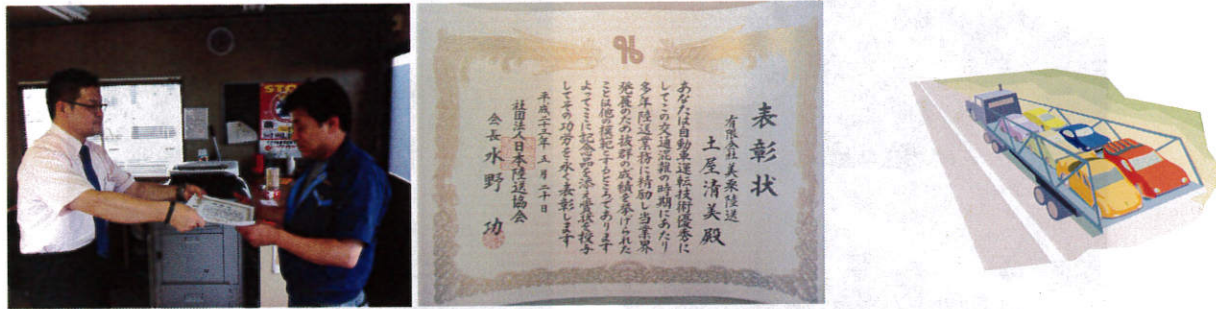 表彰状
有限会社美栗陸送
土屋清美殿
あなたは自動車運転技術優秀に
してこの交通混雑の時期にあたり
多年陸送業務に精励し当業界
発展のため抜群の成績を挙げられた
ことは他の模範とするところであります
よってここに記念品を添え賞状を授与
してその功労を永く表彰します
平成二十三年五月二十日
社団法人日本陸送協会
会長水野功